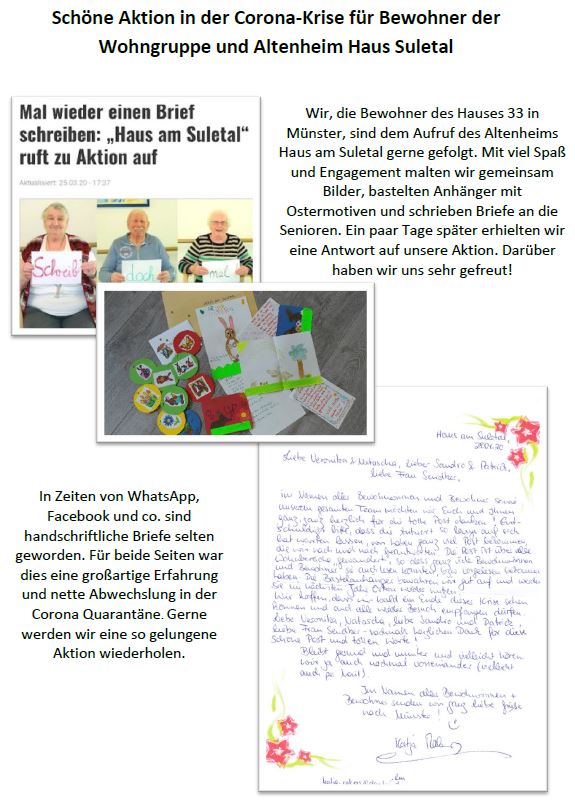 Schöne Aktion in der Corona-Krise für Bewohner der
Wohngruppe und Altenheim Haus Suletal
Mal wieder einen Brief
schreiben: „Haus am Suletal“
ruft zu Aktion auf
Aktualisiert: 25.03.20 - 17:37
Schreib doch mal
Wir, die Bewohner des Hauses 33 in
Münster, sind dem Aufruf des Altenheims
Haus am Suletal gerne gefolgt. Mit viel Spaß
und Engagement malten wir gemeinsam
Bilder, bastelten Anhänger mit
Ostermotiven und schrieben Briefe an die
Senioren. Ein paar Tage später erhielten wir
eine Antwort auf unsere Aktion. Darüber
haben wir uns sehr gefreut!
In Zeiten von WhatsApp,
Facebook und co. sind
handschriftliche Briefe selten
geworden. Für beide Seiten war
dies eine großartige Erfahrung
und nette Abwechslung in der
Corona Quarantäne. Gerne
werden wir eine so gelungene
Aktion wiederholen.
Haus am Suletal,
Liebe Veronika & Natascha, lieber Sandro & Patrick,
liebe Frau Sendker,
im Namen aller Bewohnerinnen und Bewohner sowie
unserem gesamten Team möchten wir Euch und Ihnen
ganz, ganz herzlich für die tolle Post danken! Ent-
schuldigt bitte, dass die Antwort so lange auf sich
hat warten lassen, wir haben ganz viel Post bekommen,
die wir nach und nach beantworten. Die Post ist über alle
Wohnbereiche gewandert, so dass ganz viele Bewohnerinnen
und Bewohner sie auch lesen konnten bzw. vorgelesen bekommen
haben. Die Bastelanhänger bewahren wir gut auf und werden
sie im nächsten Jahr Ostern wieder nutzen.
Wir hoffen, dass wir bald ein Ende dieser Krise sehen
können und auch alle wieder Besuch empfangen dürfen.
Liebe Veronika, Natascha, liebe Sandro und Patrick,
liebe Frau Sendker - nochmals herzlichen Dank für diese
schöne Post und tollen Worte!
Bleibt gesund und munter und vielleicht hören
wir ja auch nochmal voneinander (vielleicht
auch per Mail).
Im Namen aller Bewohnerinnen +
Bewohner senden wir ganz liebe Grüße
nach Münster!
Katja